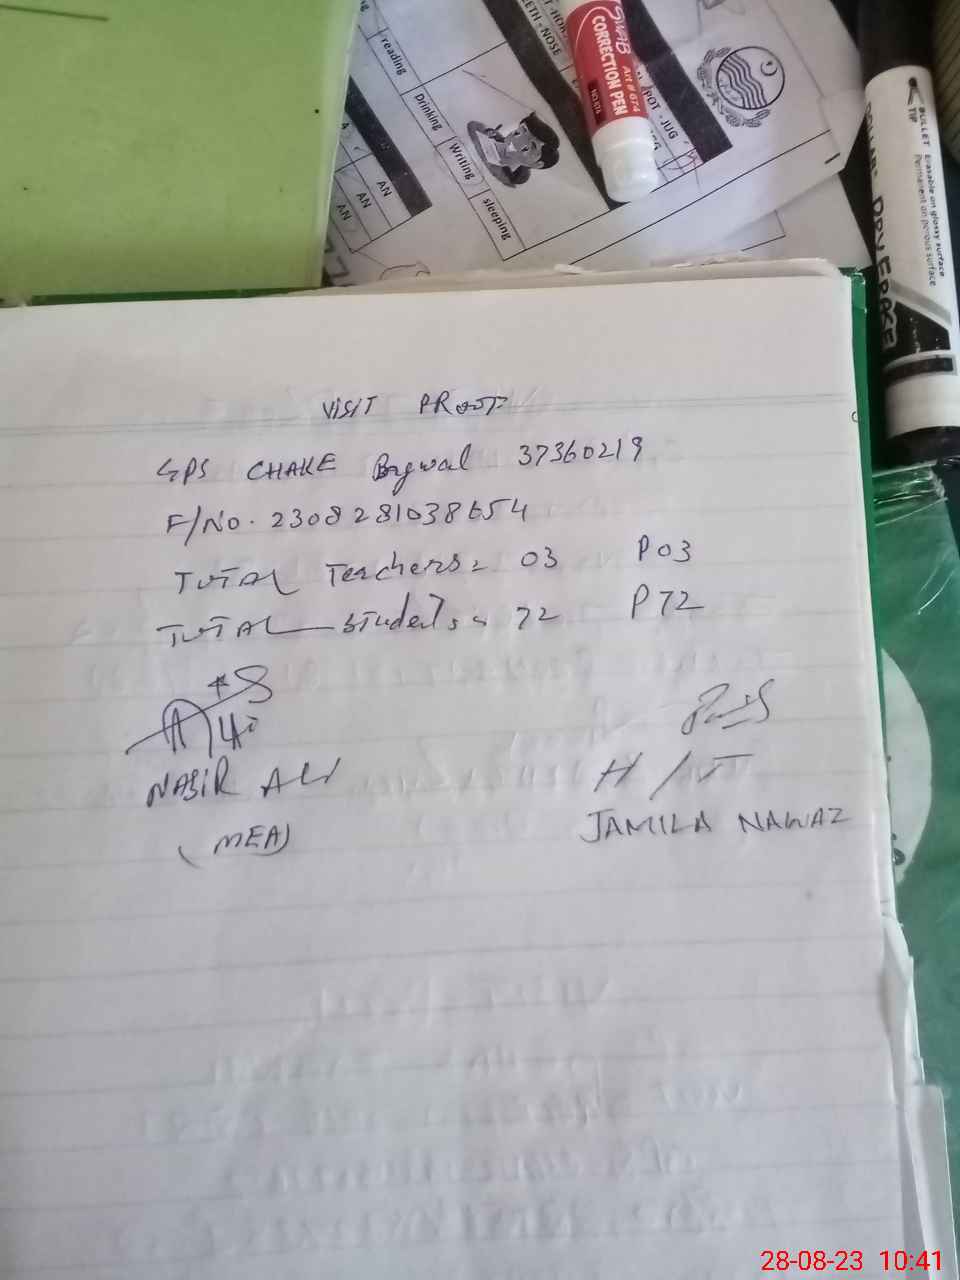 reading
Drinking
Writing
sleeping
AN
AN
AN
SWAB
CORRECTION PEN
Art # 674
POT - JUG
BULLET TIP
Erasable on glossy surface
Permanent on porous surface
DRY ERASE
VISIT PROOF
GPS CHAKE Bagwal 37360219
F/No. 2308281038654
TOTAL Teachers = 03 P03
TOTAL Students = 72 P72
NASIR ALI
(MEA)
H/T
JAMILA NAWAZ
28-08-23 10:41